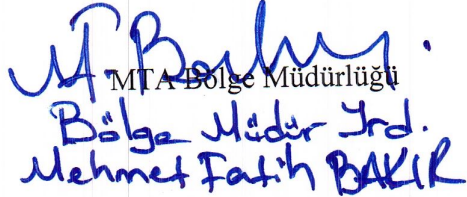 MTA Bölge Müdürlüğü
Bölge Müdür Yrd.
Mehmet Fatih BAKIR